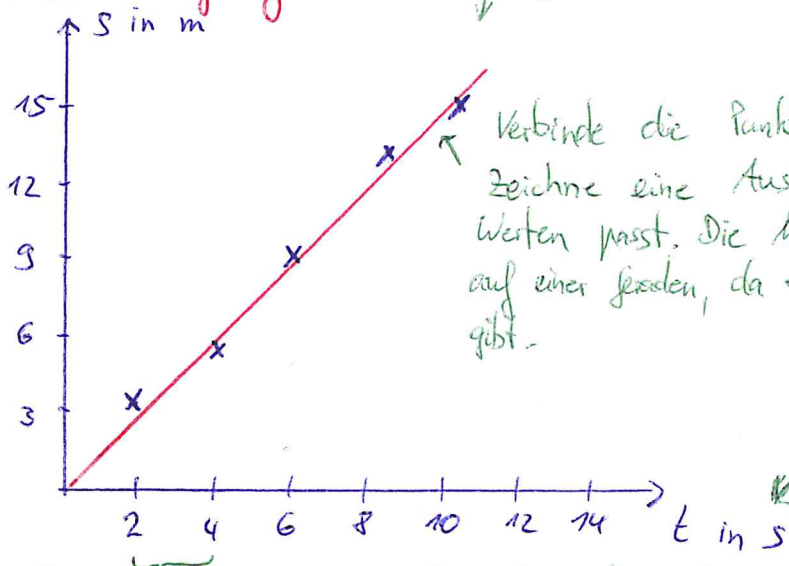 s in m
15
12
9
6
3
2 4 6 8 10 12 14
t in s
Verbinde die
Zeichne eine
Werten passt. Die
auf einer Geraden, da
gibt.